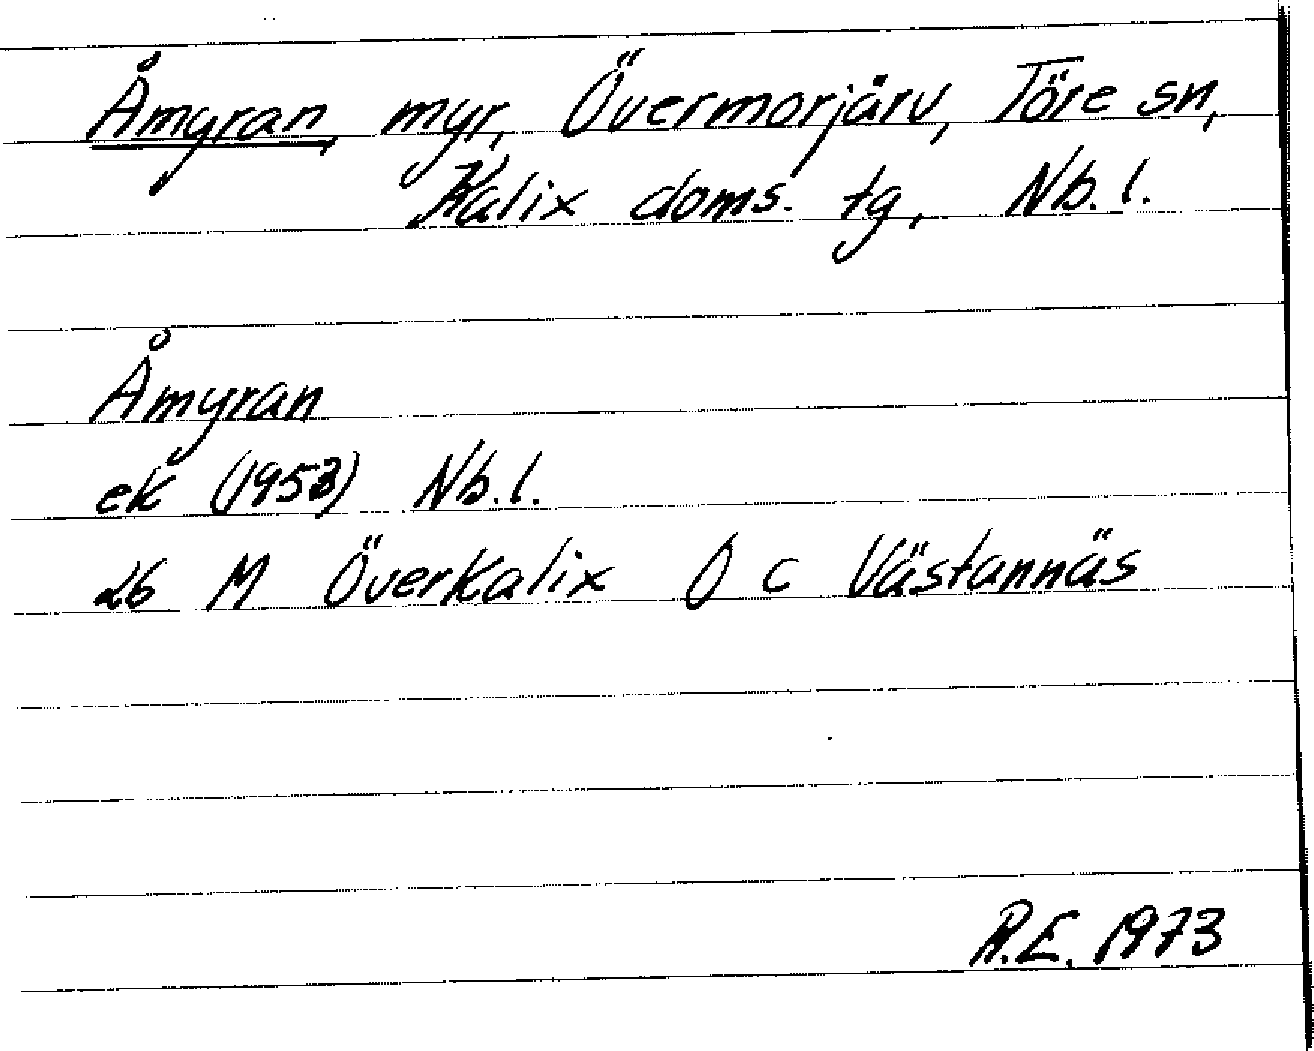 Åmyran, myr, Övermorjärv, Töre sn,
Kalix doms. tg, Nb. l.
Åmyran
ek (1953) Nb. l.
26 M Överkalix Ö c Västannäs
R.E. 1973